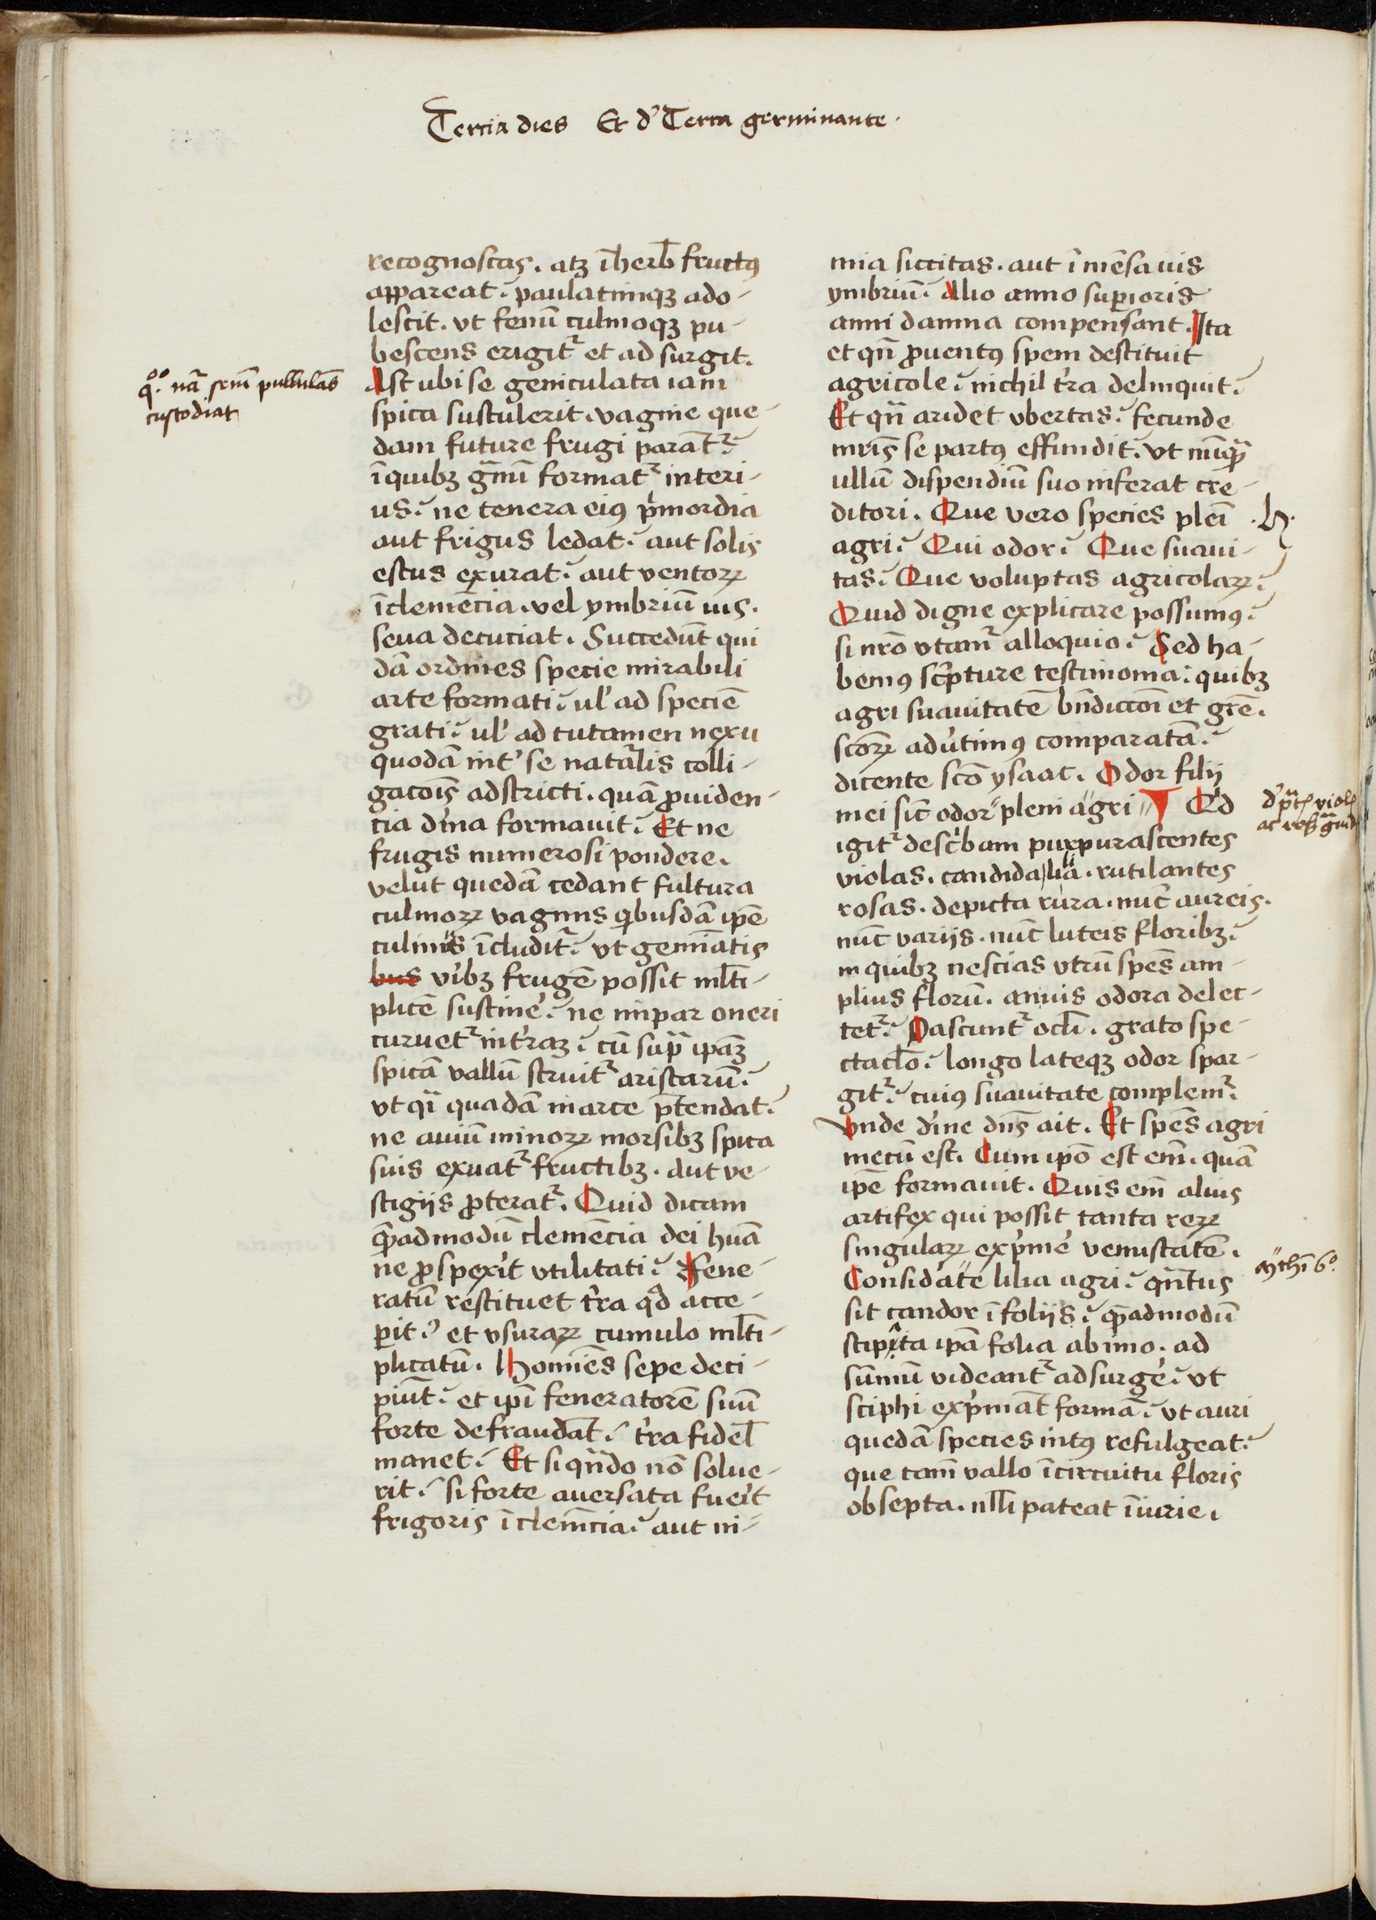 Tercia dies Et d' Terra germinante .
recognoscas . atqꝫ ī herb̄ fructꝰ
appareat . paulatimqꝫ ado-
lescit . vt fenū culmoqꝫ pu-
bescens erigit᷑ et ad surgit .
Ast ubi se geniculata iam
spica sustulerit . vagine que-
dam future frugi parāt᷑ .
ī quibꝫ gͣnū format᷑ interi-
us . ne tenera eiꝰ pͥmordia
aut frigus ledat . aut solis
estus exurat . aut ventoꝝ
īclemēcia . vel ymbriū uis .
seua decutiat . Succedūt qui
dā ordines specie mirabili
arte formati . ul' ad speciē
grati . ul' ad tutamen nexu
quodā int' se nat'alis colli-
gacōis adstricti . quā ꝓuiden-
cia d'ina formauit . Et ne
frugis numerosi pondere .
velut quedā cedant fultura
culmoꝝ vaginis qͥbusdā ip̄e
culmꝰ īcludit᷑ . vt gemīatis
bus viͥbꝫ frugē possit ml̄ti-
plicē sustine' . ne impar oneri
curuet᷑ in t'raꝫ . cū supͣ ip̄aꝫ
spicā vallū struit᷑ aristarū .
vt qͣi quadā in arce p̄tendat .
ne auiū minoꝝ morsibꝫ spica
suis exuat᷑ fructibꝫ . aut ve-
stigijs ꝓterat᷑ . Quid dicam
qͣ̄admodū clemēcia dei huā
ne ꝓspexit vtilitati . Fene-
ratū restituet t'ra qd̄ acce-
ꝑit . et vsuraꝝ cumulo ml̄ti-
plicatū . Homīes sepe deci-
piūt . et ip̄i feneratorē suū
forte defraudāt . t'ra fidel̄
manet . Et si qn̄do nō solue-
rit . si forte auersata fuerit
frigoris īclem̄cia . aut ni-
mia siccitas . aut ī mēsa uis
ymbriū . Alio anno superioris
anni damna compensant . Ita
et qn̄ ꝓuentꝰ spem destituit
agricole . nichil t'ra delinquit .
Et qn̄ aridet vbertas . fecunde
mr̄is se partꝰ effundit . vt nūqͣ̄
ullū dispendiū suo inferat cre-
ditori . Que vero species pleī
agri . Qui odor . Que suaui-
tas . Que voluptas agricolaꝝ .
Quid digne explicare possumꝰ .
si nr̄o vtam᷑ alloquio . Sed ha-
bemꝰ scͥpture testimonia . quibꝫ
agri suauitatē bn̄diccōi et grē .
scōꝝ aduͥtimꝰ comparatā .
dicente scō ysaac . Odor filij
mei sic̄ odor pleni agri Qͥd
igit᷑ descͥbam purpurascentes
violas . candida lilia . rutilantes
rosas . depicta rura . nūc aureis .
nūc varijs . nūc luteis floribꝫ .
in quibꝫ nescias vtrū spēs am-
plius florū . an uis odora delec-
tet᷑ . Pascunt᷑ ocl̄i . grato spe-
ctacl̄o . longo lateqꝫ odor spar-
git᷑ . cuiꝰ suauitate complem᷑ .
Vnde d'ine dn̄s ait . Et spēs agri
mecū est . Cum ip̄o est em̄ . quā
ip̄e formauit . Quis em̄ alius
artifex qui possit tanta reꝝ
singulaꝝ expͥme' venustatē .
Considͣate lilia agri . qn̄tus
sit candor ī folijs . qͣ̄admodū
stipita ip̄a folia ab imo . ad
sūmū videant᷑ ad surge' . vt
sciphi expͥmāt formā . vt auri
quedā species intꝰ refulgeat .
que tam̄ vallo ī circuitu floris
obsepta . nll̄i pateat īiurie .
q̊ͦ . nā senū pullulās
custodiat
. h .
mͣthī 6o .